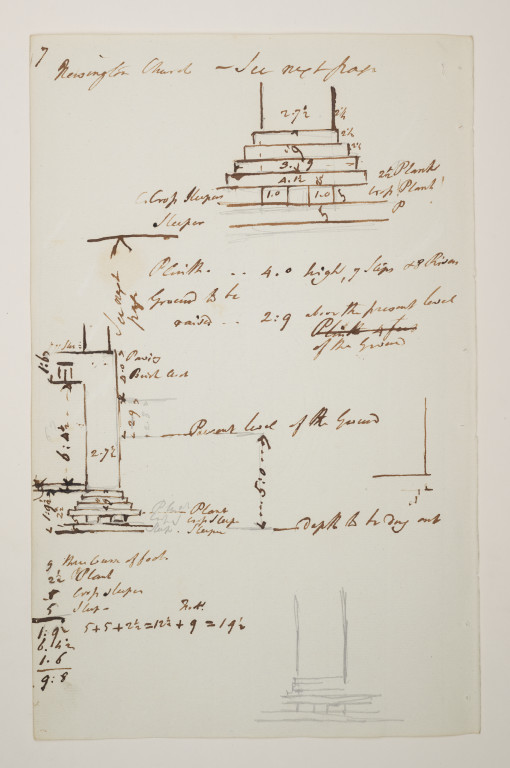 7
Newington Church - See next page
2.7½
2½
2½
2½
3.9
4.12
2½ Plank
1.0 1.0
Cross Sleepers
Cross Plank
Sleeper
See next page
Plinth. .. 4.0 high, 7 Steps & 8 Risers
Ground to be
raised .. 2:9 above the present level
of the Ground
1:6
Paving
Brick Arch
2.9
6:4½
Present level of the Ground
2.7½
5:0
1:9½
Plank
Cross Sleeper
Sleeper
depth to be dug out
9 three Courses of foots
2½ Plank
5 Cross Sleeper
5 Sleeper
1:9½ 5+5+2½=12½+9=19½
6.4½
1.6
9:8